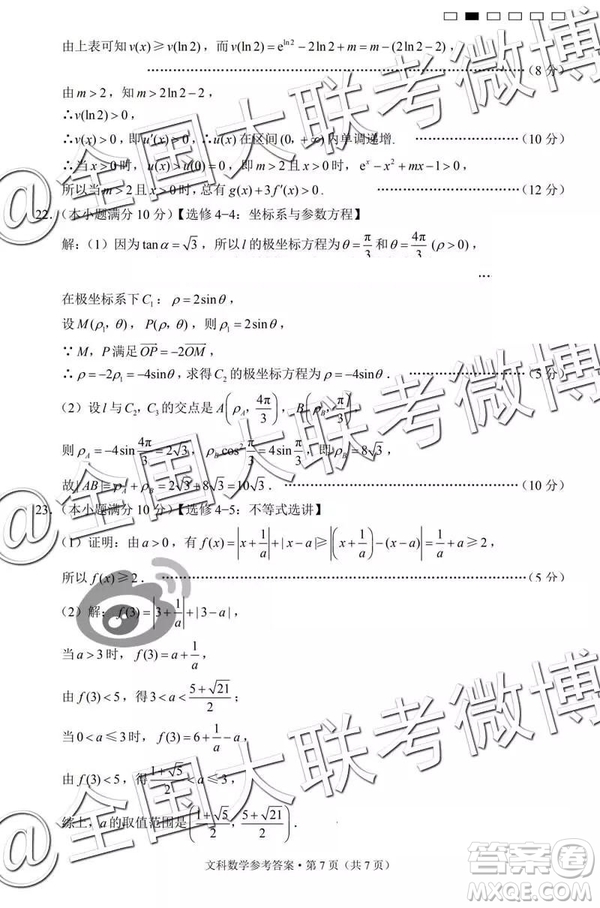 由上表可知 v(x)≥v(ln2)，而 v(ln2)=e^{ln2}−2ln2+m=m−(2ln2−2)，
…………(8 分)
由 m>2，知 m>2ln2−2，
∴v(ln2)>0，
∴v(x)>0，即 u′(x)>0，∴u(x)在区间(0，+∞)内单调递增. …………(10 分)
∴当 x>0 时，u(x)>u(0)=0，即 m>2 且 x>0 时，e^x−x²+mx−1>0，
所以当 m>2 且 x>0 时，总有 g(x)+3f′(x)>0. …………(12 分)
22.（本小题满分 10 分）【选修 4-4：坐标系与参数方程】
解：（1）因为 tanα=√3，所以 l 的极坐标方程为 θ=π/3 和 θ=4π/3 (ρ>0)，
…
在极坐标系下 C₁：ρ=2sinθ，
设 M(ρ₁，θ)，P(ρ，θ)，则 ρ₁=2sinθ，
∵ M，P 满足 OP=−2OM，
∴ρ=−2ρ₁=−4sinθ，求得 C₂ 的极坐标方程为 ρ=−4sinθ. …………(5 分)
（2）设 l 与 C₂，C₃ 的交点是 A(ρ_A，4π/3)，B(ρ_B，π/3)，
则 ρ_A=−4sin4π/3=2√3，ρ_B cos²π/3=sinπ/3，即 ρ_B=8√3，
故|AB|=ρ_A+ρ_B=2√3+8√3=10√3. …………(10 分)
23.（本小题满分 10 分）【选修 4-5：不等式选讲】
（1）证明：由 a>0，有 f(x)=|x+1/a|+|x−a|≥|(x+1/a)−(x−a)|=1/a+a≥2，
所以 f(x)≥2. …………(5 分)
（2）解：f(3)=|3+1/a|+|3−a|，
当 a>3 时，f(3)=a+1/a，
由 f(3)<5，得 3<a<(5+√21)/2；
当 0<a≤3 时，f(3)=6+1/a−a，
由 f(3)<5，得 (1+√5)/2<a≤3，
综上，a 的取值范围是((1+√5)/2，(5+√21)/2).
文科数学参考答案·第 7 页（共 7 页）
@全国大联考微博
@全国大联考微博
答案圈
MXQE.COM